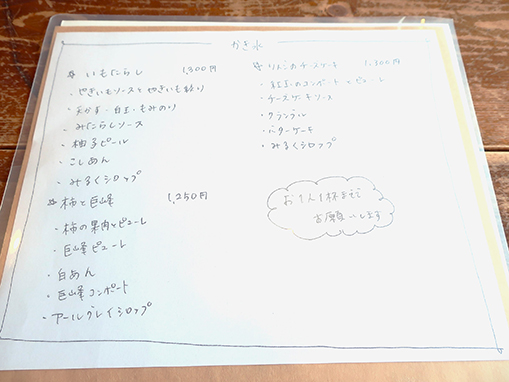 かき氷
いもくらし 1,300円
・やきいもソースとやきいも絞り
・天かす・白玉・もみのり
・みたらしソース
・柚子ピール
・こしあん
・みるくシロップ
柿と巨峰 1,250円
・柿の果肉とピューレ
・巨峰ピューレ
・白あん
・巨峰コンポート
・アールグレイシロップ
りんごのチーズケーキ 1,300円
・紅玉のコンポートとピューレ
・チーズケーキソース
・クランブル
・バターケーキ
・みるくシロップ
お1人1杯まで
お願いします